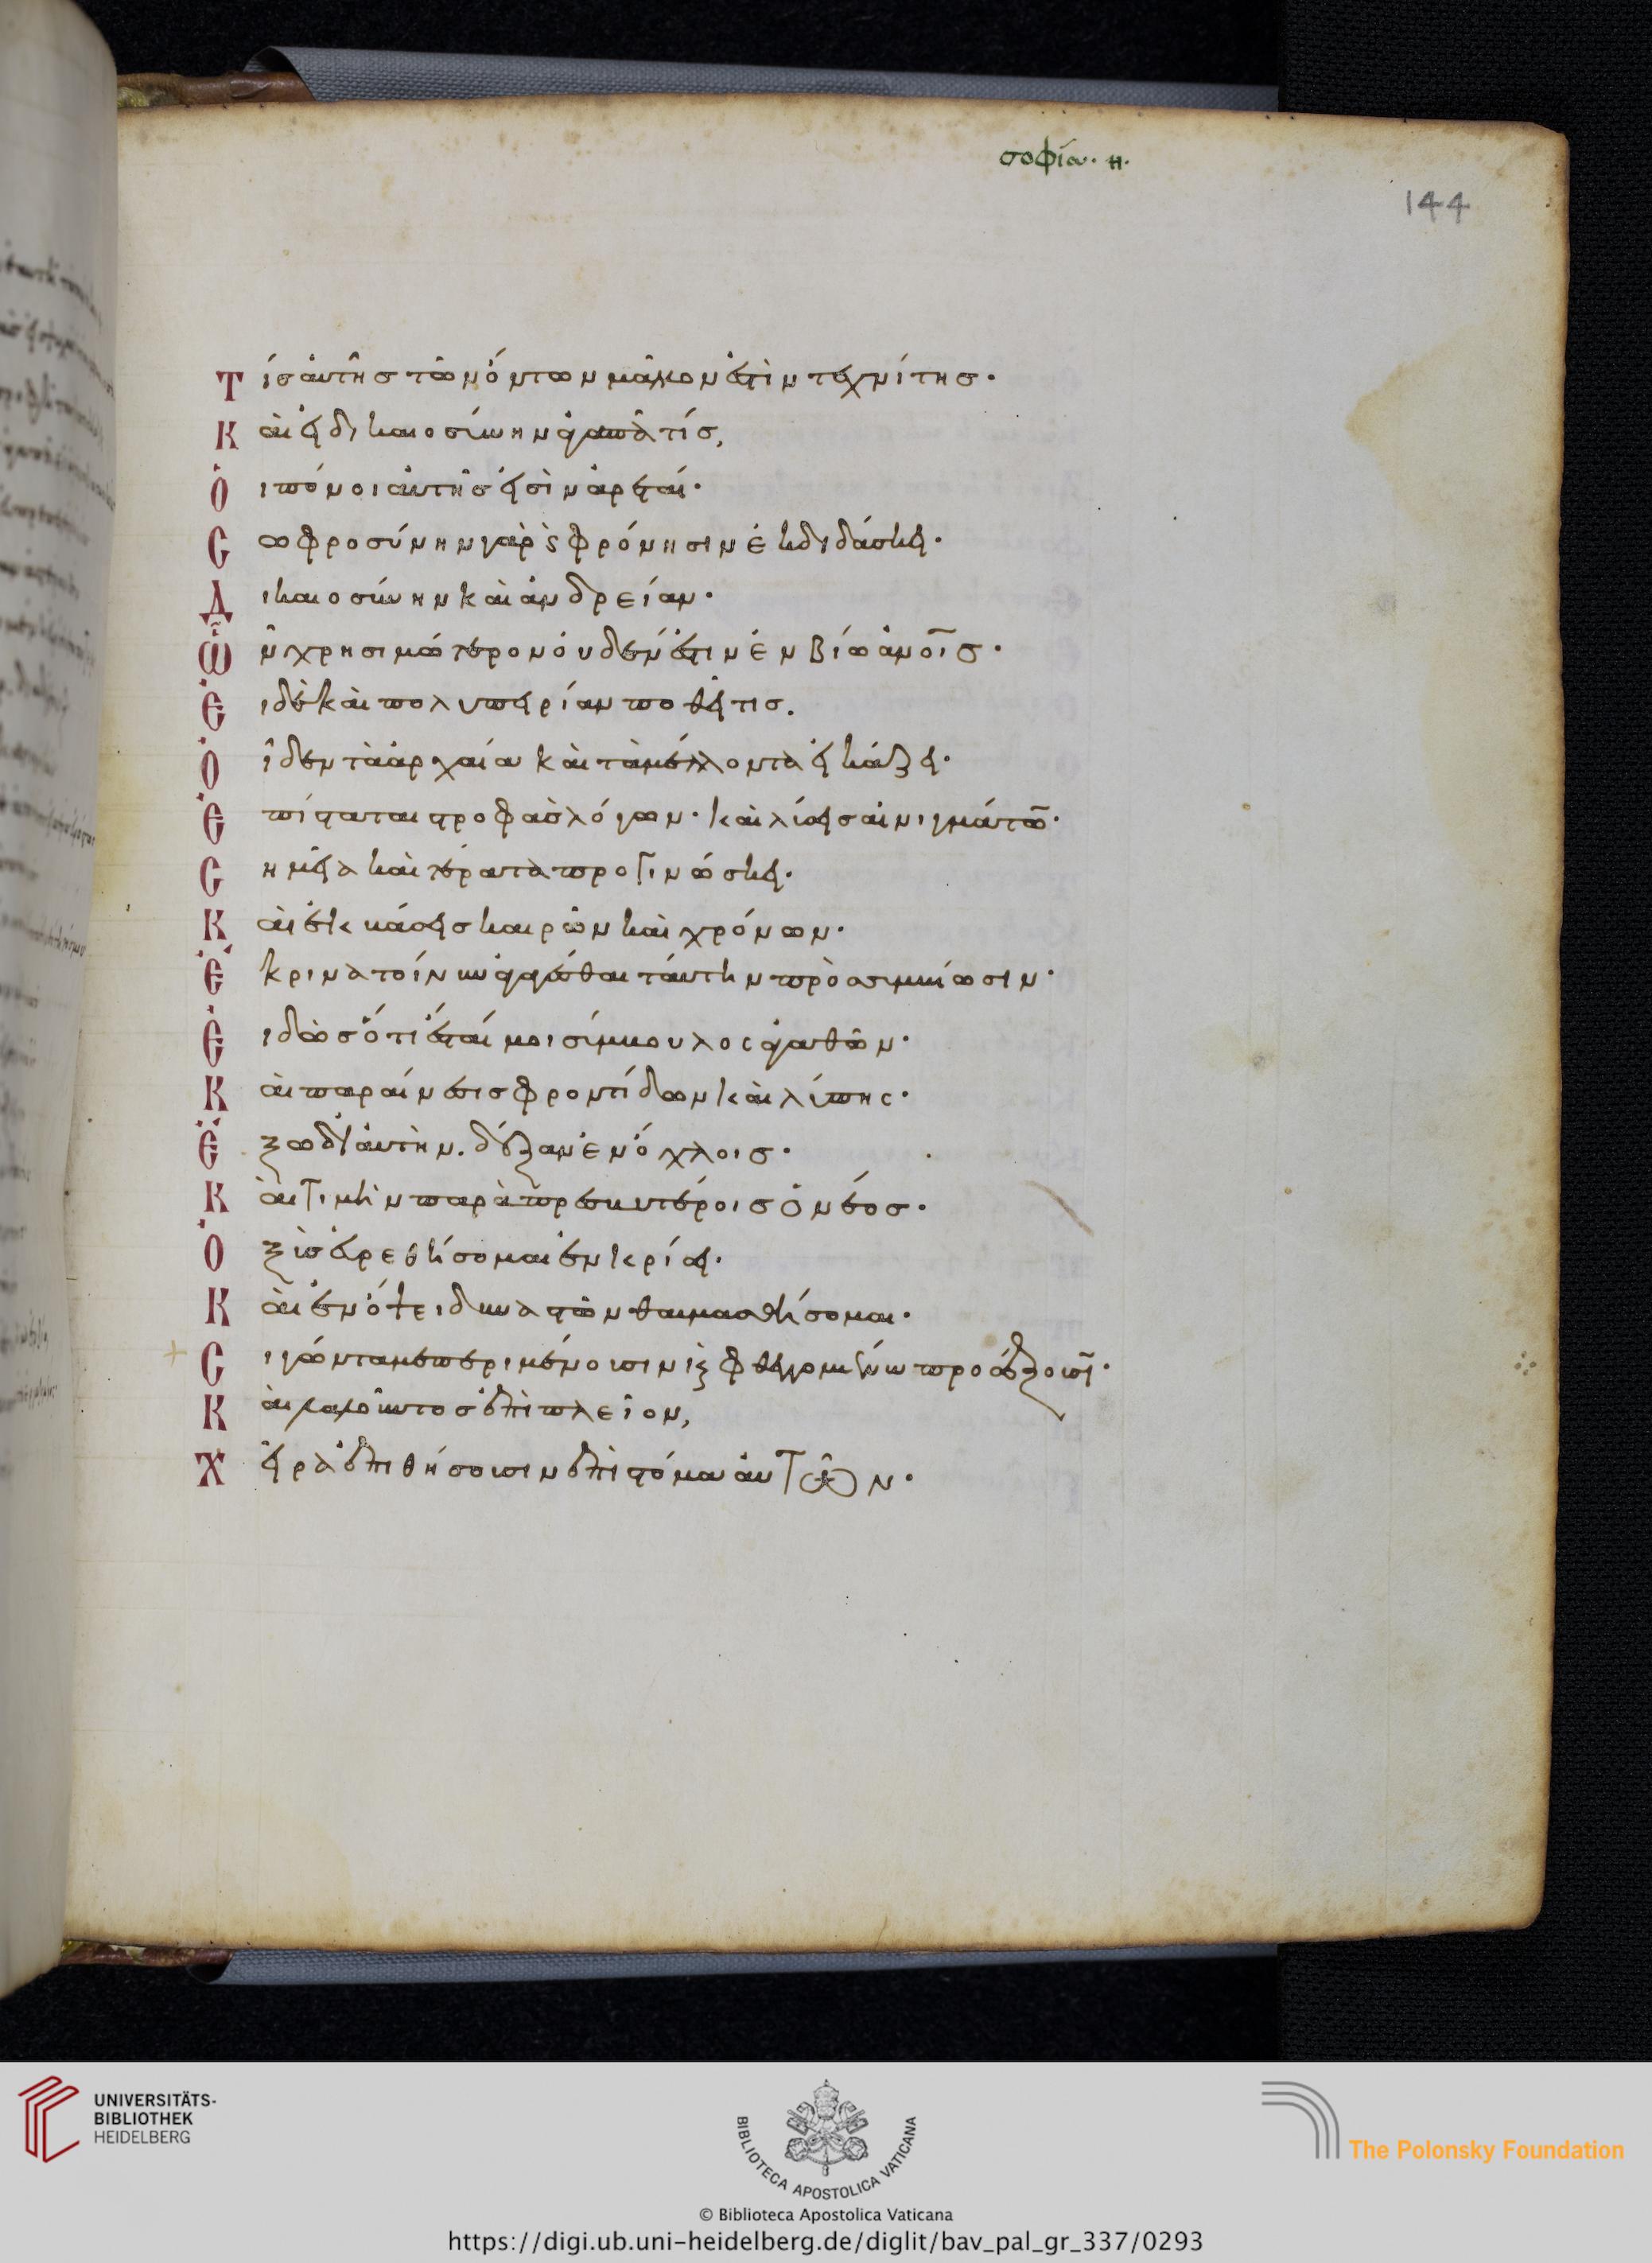 σοφία· η·
144
Τίς αὐτῆς τῶν ὄντων μᾶλλον ἐστὶν τεχνίτης·
Καὶ εἰ δικαιοσύνην ἀγαπᾶ τίς,
Ὁι πόνοι αὐτῆς εἰσὶν ἀρεταί·
Σωφροσύνην γὰρ ϛ φρόνησιν ἐκδιδάσκει·
Δικαιοσύνην καὶ ἀνδρείαν·
Ὧν χρησιμώτερον οὐδέν ἐστιν ἐν βίω ἀνοις·
Ἐι δὲ καὶ πολυπειρίαν ποθεῖ τις.
Ὀῖδεν τὰ ἀρχαία καὶ τὰ μέλλοντα εἰκάζει·
Ἐπίσταται στροφὰς λόγων· καὶ λύσεις αἰνιγμάτω·
Σημεῖα καὶ τέρατα προγινώσκει·
Καὶ ἐκβάσεις καιρῶν καὶ χρόνων·
Ἔκρινα τοίνυν ἀγαγέσθαι ταύτην πρὸς συμβίωσιν·
Ἐιδὼς ὅτι ἔσται μοι σύμβουλος ἀγαθῶν·
Καὶ παραίνεσις φροντίδων καὶ λύπης·
Ἕξω δι αὐτὴν. δόξαν ἐν ὄχλοις·
Καὶ τιμὴν παρὰ πρεσβυτέροις ὁ νέος·
Ὀξὺς εὑρεθήσομαι ἐν κρίσει·
Καὶ ἐν ὄψει δυναστῶν θαυμασθήσομαι·
Σιγῶντα με περιμένουσιν ϗ φθεγγομένω προσέξουσι·
Καὶ λαλοῦντος ἐπὶ πλεῖον,
Χεῖρα ἐπιθήσουσιν ἐπὶ στόμα αὐτῶν·
UNIVERSITÄTS-
BIBLIOTHEK
HEIDELBERG
BIBLIOTECA APOSTOLICA VATICANA
The Polonsky Foundation
© Biblioteca Apostolica Vaticana
https://digi.ub.uni-heidelberg.de/diglit/bav_pal_gr_337/0293